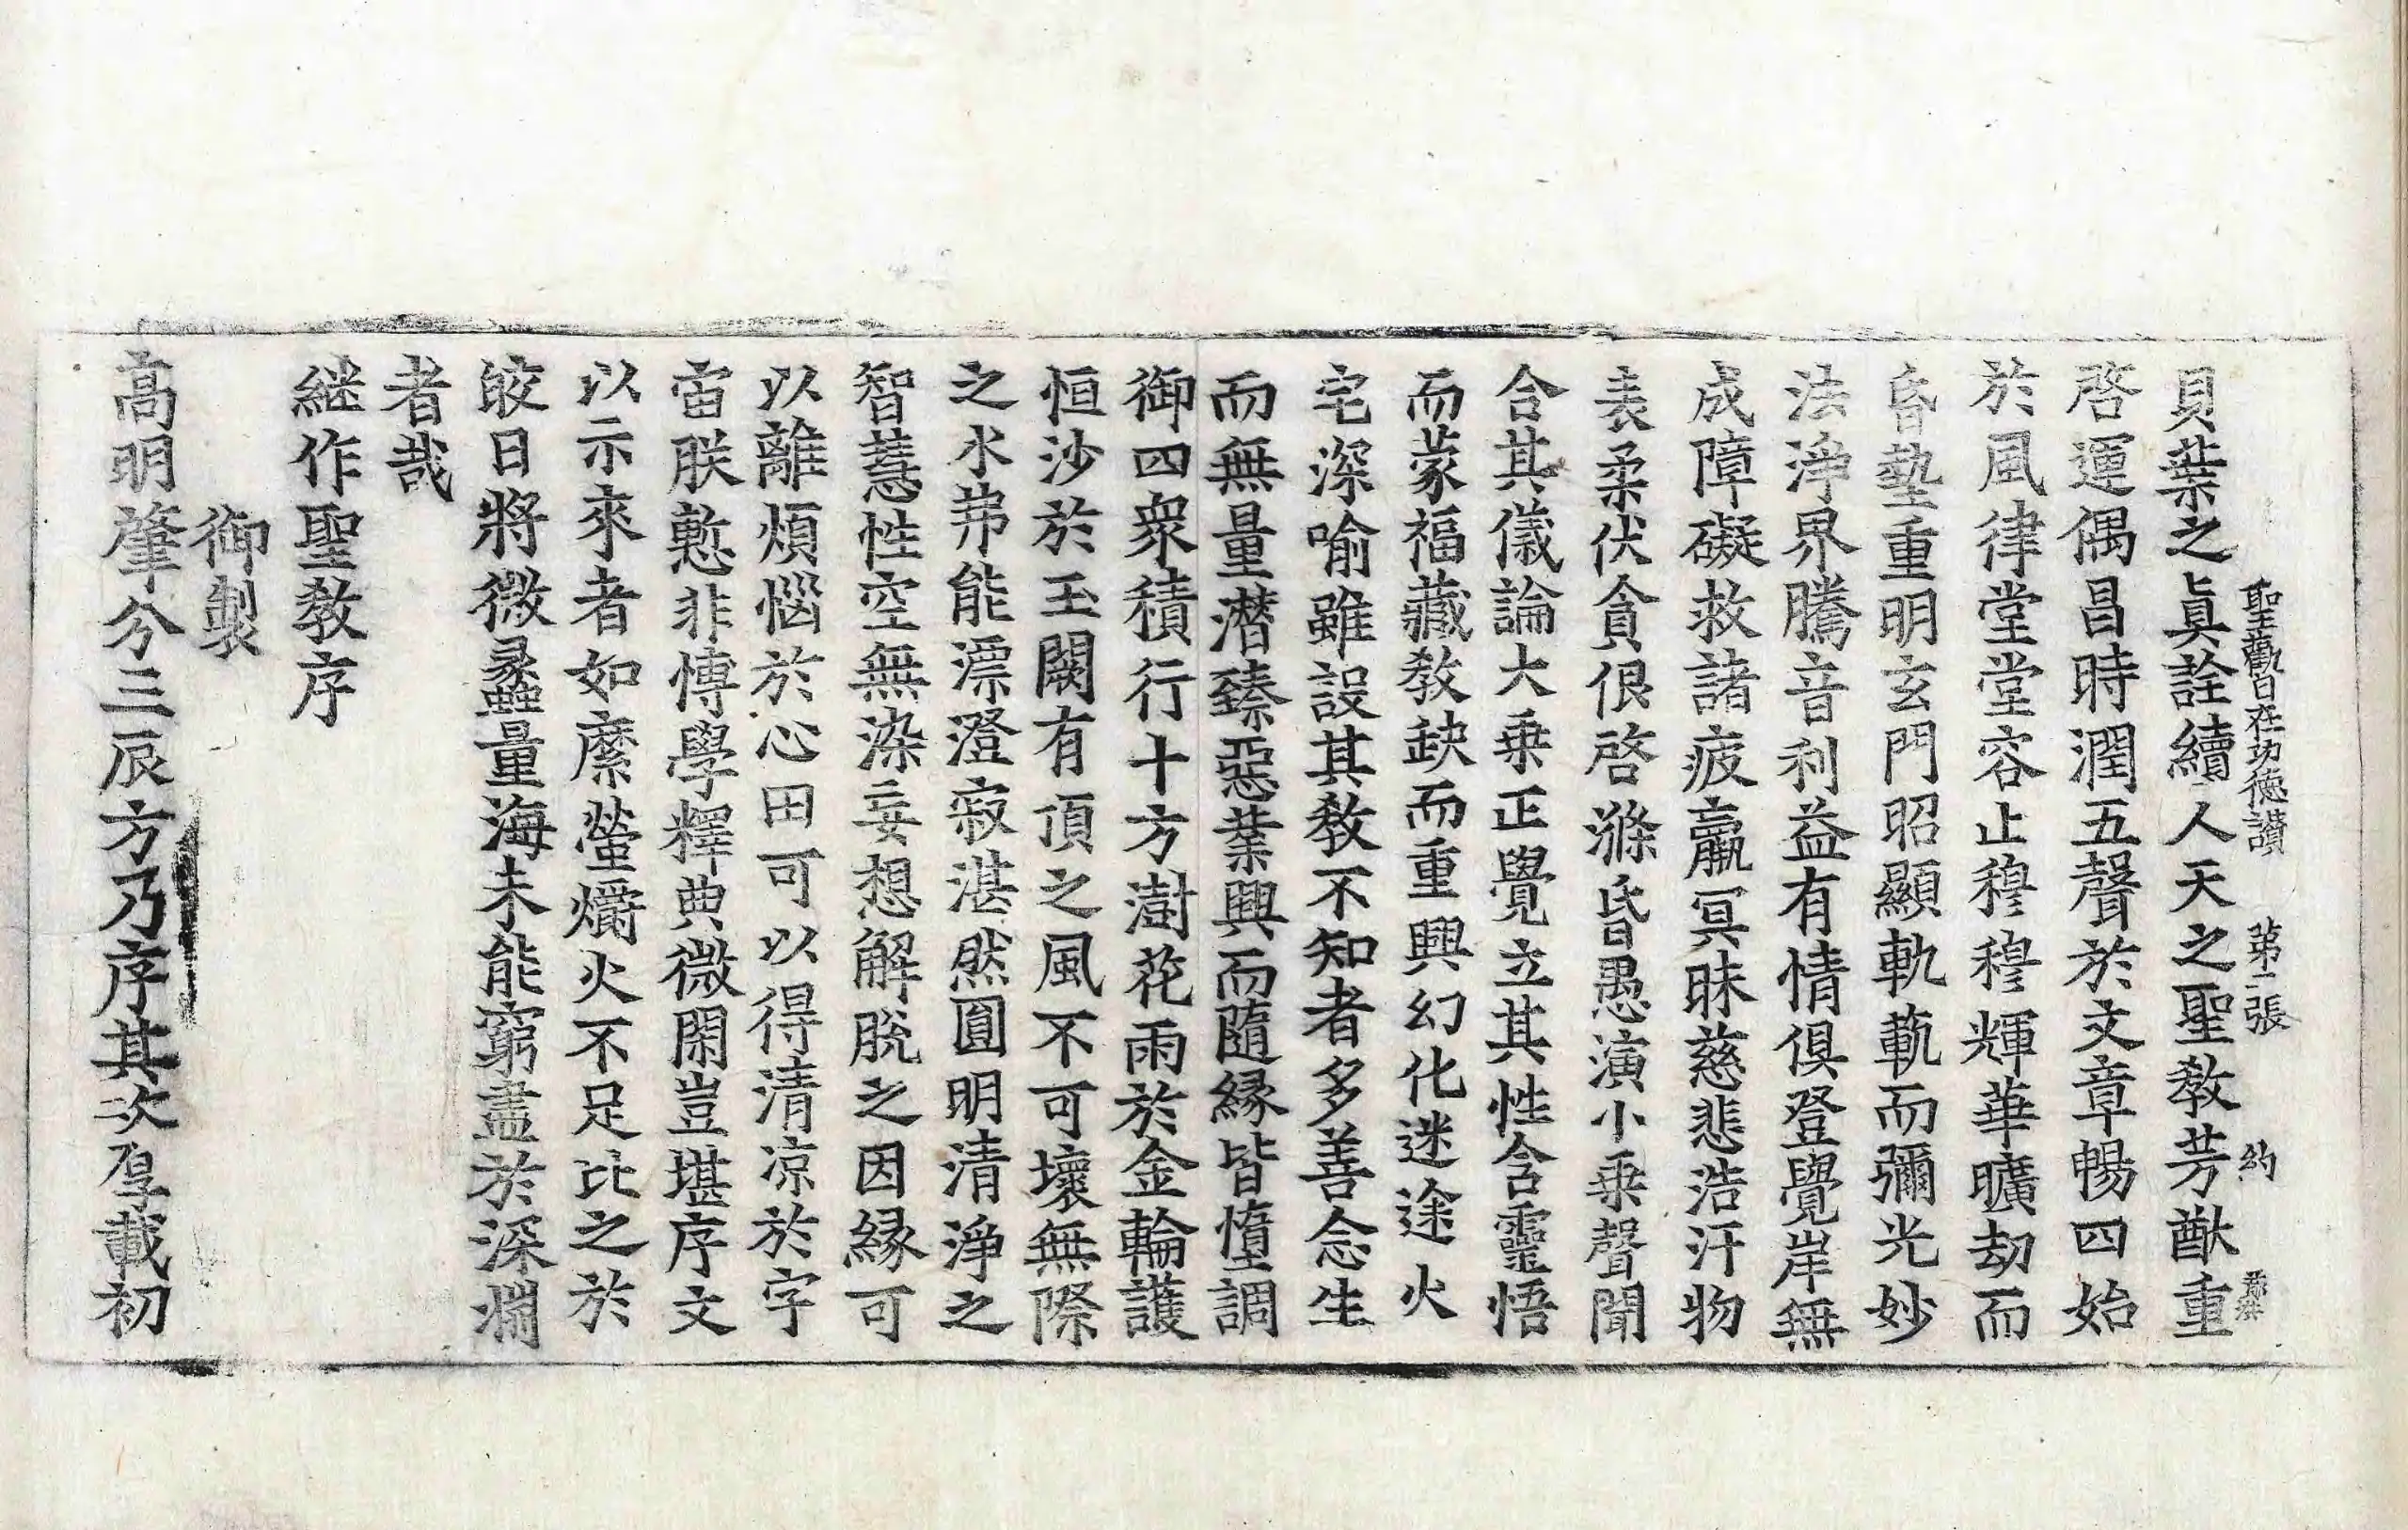 聖觀自在功德讚 第二張 約
貝葉之眞詮續人天之聖敎芳猷重
啓運偶昌時潤五聲於文章暢四始
於風律堂堂容止穆穆輝華曠劫而
昏墊重明玄門昭顯軌䡄而彌光妙
法淨界騰音利益有情俱登覺岸無
成障礙救諸疲羸冥昧慈悲浩汗物
表柔伏貪佷啓滌昏愚演小乗聲聞
合其儀論大乗正覺立其性含靈悟
而蒙福藏敎缺而重興幻化迷途火
宅深喻雖設其敎不知者多善念生
而無量潛臻惡業興而隨緣皆墮調
御四衆積行十方澍花雨於金輪護
恒沙於玉闕有頂之風不可壞無際
之水弗能漂澄寂湛然圓明清淨之
智慧性空無染妄想解脫之因緣可
以離煩惱於心田可以得清涼於宇
宙朕慙非博學釋典微閑豈堪序文
以示來者如縻螢爝火不足比之於
皎日將微蠡量海未能窮盡於深淵
者哉
継作聖敎序
御製
高明肇分三辰方乃序其次厚載初